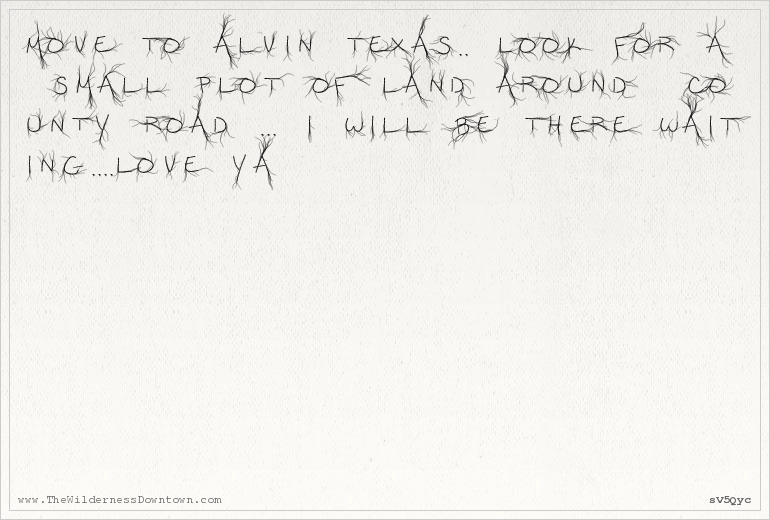 MOVE TO ALVIN TEXAS.. LOOK FOR A
SMALL PLOT OF LAND AROUND CO
UNTY ROAD ... I WILL BE THERE WAIT
ING....LOVE YA
www.TheWildernessDowntown.com sV5Qyc